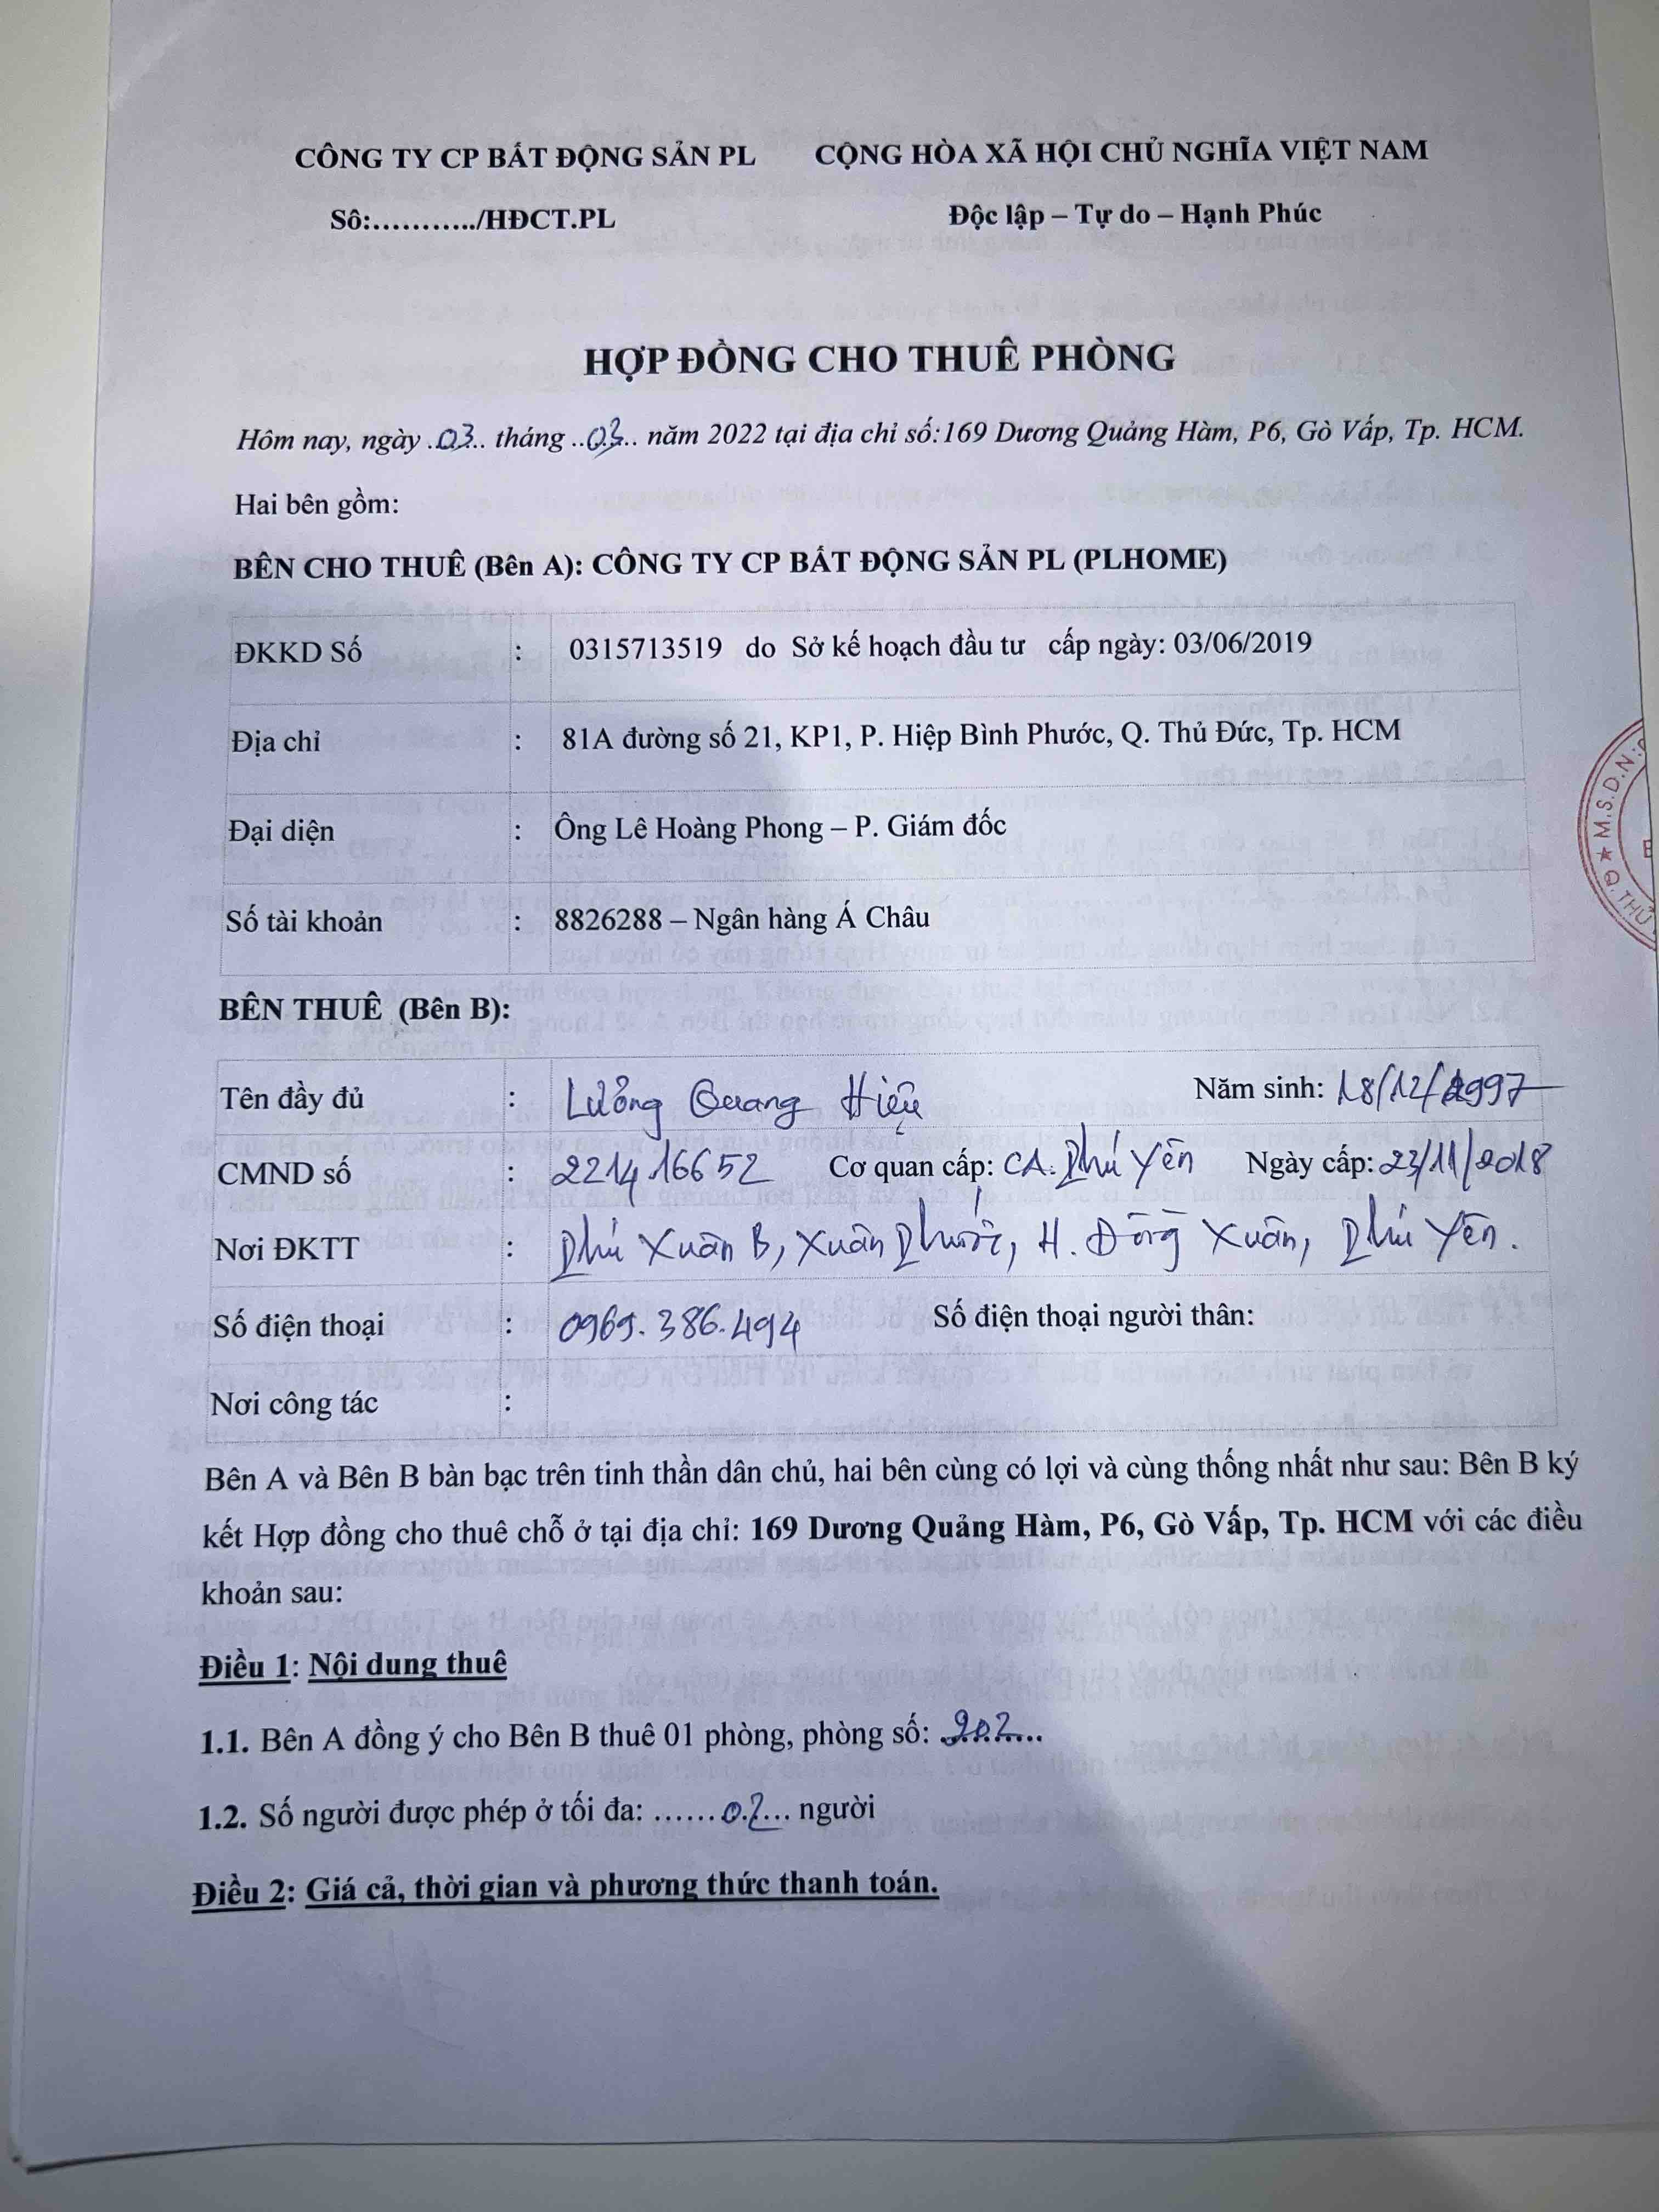 CÔNG TY CP BẤT ĐỘNG SẢN PL CỘNG HÒA XÃ HỘI CHỦ NGHĨA VIỆT NAM
Số:.........../HĐCT.PL Độc lập – Tự do – Hạnh Phúc
HỢP ĐỒNG CHO THUÊ PHÒNG
Hôm nay, ngày .03.. tháng ..03.. năm 2022 tại địa chỉ số:169 Dương Quảng Hàm, P6, Gò Vấp, Tp. HCM.
Hai bên gồm:
BÊN CHO THUÊ (Bên A): CÔNG TY CP BẤT ĐỘNG SẢN PL (PLHOME)
ĐKKD Số : 0315713519 do Sở kế hoạch đầu tư cấp ngày: 03/06/2019
Địa chỉ : 81A đường số 21, KP1, P. Hiệp Bình Phước, Q. Thủ Đức, Tp. HCM
Đại diện : Ông Lê Hoàng Phong – P. Giám đốc
Số tài khoản : 8826288 – Ngân hàng Á Châu
BÊN THUÊ (Bên B):
Tên đầy đủ : Lưỡng Quang Hiệu Năm sinh: 18/12/1997
CMND số : 221416652 Cơ quan cấp: CA. Phú Yên Ngày cấp: 23/11/2018
Nơi ĐKTT : Phú Xuân B, Xuân Phước, H. Đồng Xuân, Phú Yên.
Số điện thoại : 0969.386.494 Số điện thoại người thân:
Nơi công tác :
Bên A và Bên B bàn bạc trên tinh thần dân chủ, hai bên cùng có lợi và cùng thống nhất như sau: Bên B ký
kết Hợp đồng cho thuê chỗ ở tại địa chỉ: 169 Dương Quảng Hàm, P6, Gò Vấp, Tp. HCM với các điều
khoản sau:
Điều 1: Nội dung thuê
1.1. Bên A đồng ý cho Bên B thuê 01 phòng, phòng số: 202...
1.2. Số người được phép ở tối đa: ......02... người
Điều 2: Giá cả, thời gian và phương thức thanh toán.
M.S.D.N:
Q. THỦ